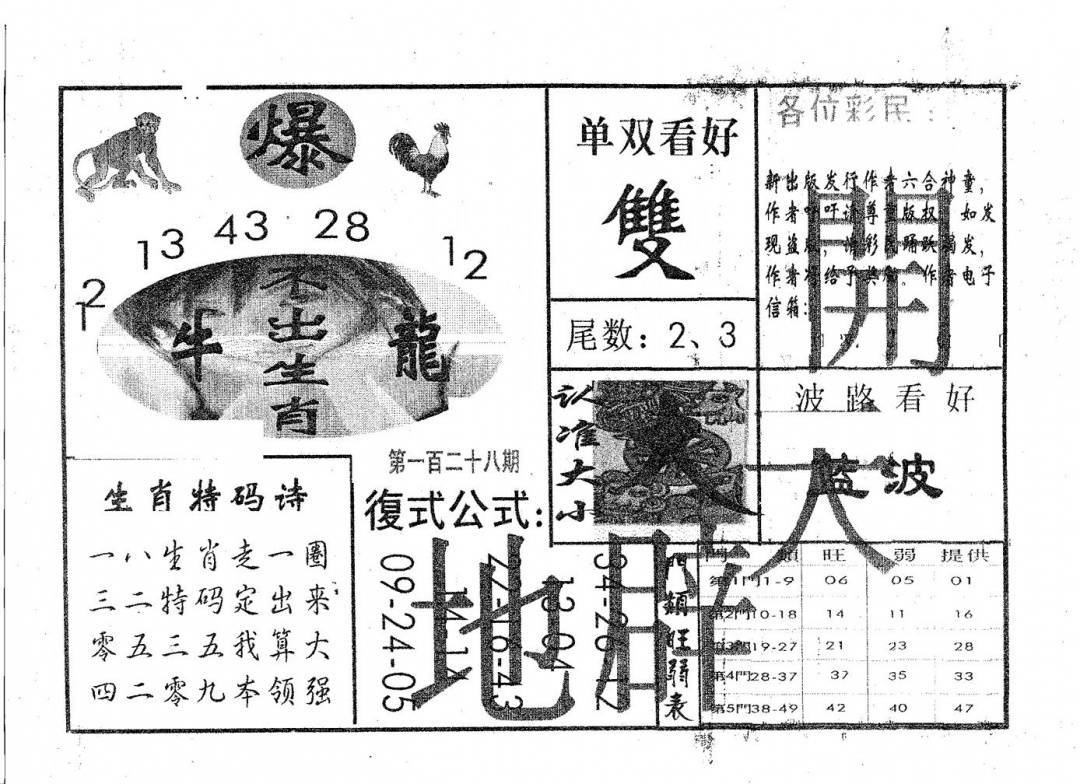 爆
13 43 28
12 12
不出生肖
牛 龍
单双看好
雙
尾数：2、3
认准大小
各位彩民：
新出版发行作者六合神童，
作者呼吁请尊重版权，如发
现盗版，请彩民踊跃揭发，
作者将给予奖励。作者电子
信箱：
開
波路看好
蓝波
第一百二十八期
復式公式：
09-24-05
27-16-43
34-26-12
13-04
地
生肖特码诗
一八生肖走一圈
三二特码定出来
零五三五我算大
四二零九本领强
門類旺弱表
門 類 旺 弱 提供
第1門1-9 06 05 01
第2門10-18 14 11 16
第3門19-27 21 23 28
第4門28-37 37 35 33
第5門38-49 42 40 47